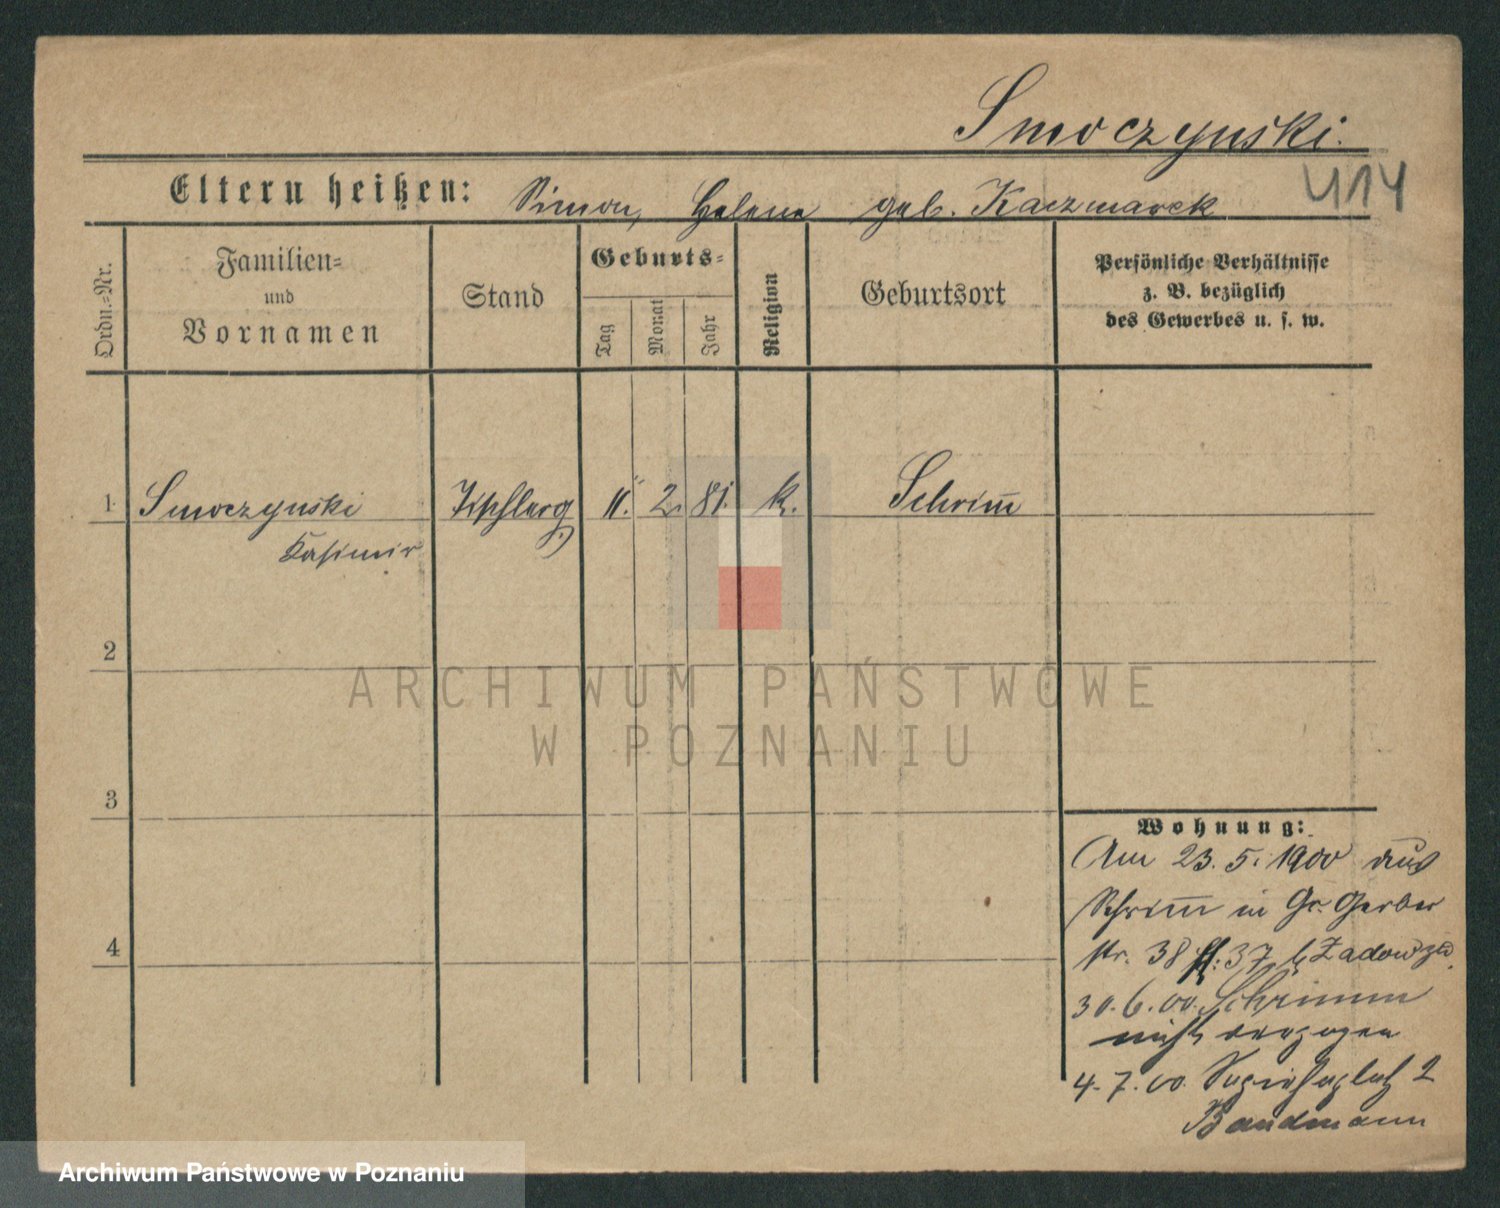 Smoczynski.
414
Eltern heißen: Simon, Helene geb. Kaczmarek
Ordn.-Nr.
Familien-
und
Vornamen
Stand
Geburts-
Tag
Monat
Jahr
Religion
Geburtsort
Persönliche Verhältnisse
z. B. bezüglich
des Gewerbes u. s. w.
1 Smoczynski 11. 2. 81. k. Schrim̅
Kasimir
2
3
4
Wohnung:
Am 23. 5. 1900 aus
Schrim̅ in Gr. Gerber
str. 38 37 b
30. 6. 00. Schrimm
nicht verzogen
4. 7. 00. Sapiehaplatz 2
Bandmann
ARCHIWUM PAŃSTWOWE
W POZNANIU
Archiwum Państwowe w Poznaniu